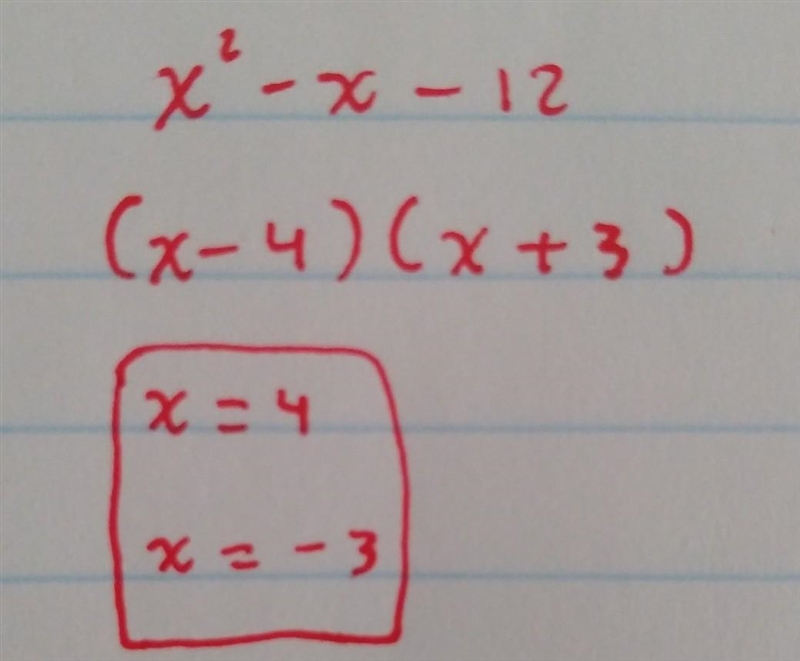 x² - x - 12
(x - 4)(x + 3)
x = 4
x = -3